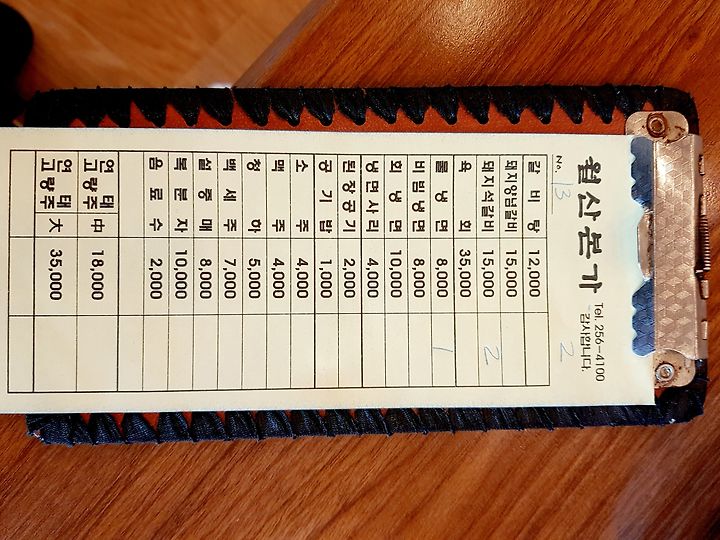 월산본가
Tel. 256-4100
감사합니다.
No. 13 2
갈비탕 12,000
돼지양념갈비 15,000
돼지석갈비 15,000 2
육회 35,000
물냉면 8,000 1
비빔냉면 8,000
회냉면 10,000
냉면사리 4,000
된장공기 2,000
공기밥 1,000
소주 4,000
맥주 4,000
청하 5,000
백세주 7,000
설중매 8,000
복분자 10,000
음료수 2,000
연태
고량주 中 18,000
연태
고량주 大 35,000